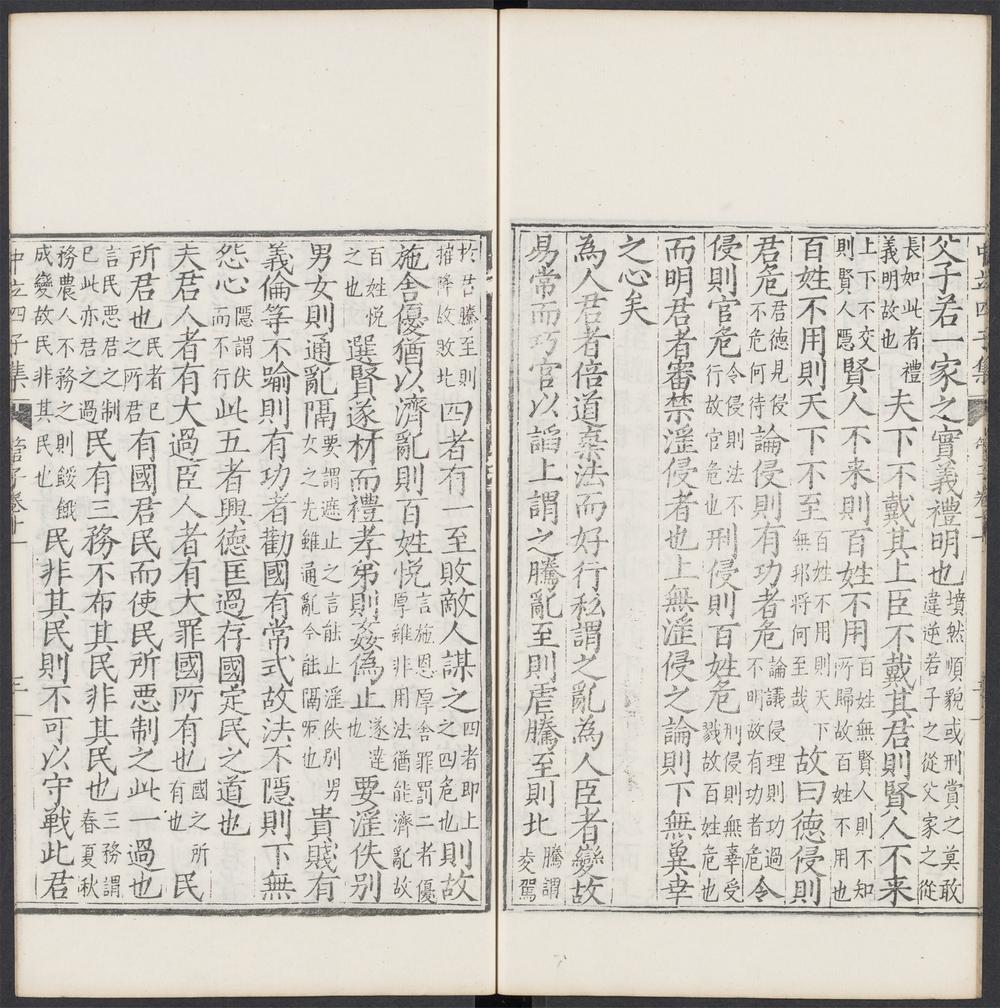 中立四子集 管子卷十一
父子若一家之實義禮明也墳然順貌或刑賞之莫敢違逆若子之從父家之從
長如此者禮義明故也夫下不戴其上臣不戴其君則賢人不来
上下不交則賢人隱賢人不来則百姓不用百姓無賢人則不知所歸故百姓不用也
百姓不用則天下不至百姓不用則天下無邦將何至哉故曰徳侵則
君危君徳見侵不危何待論侵則有功者危論議侵理則功過不明故有功者危令
侵則官危令侵則法不行故官危也刑侵則百姓危刑侵則無辜受戮故百姓危也
而明君者審禁滛侵者也上無滛侵之論則下無兾幸
之心矣
為人君者倍道棄法而好行私謂之亂為人臣者變故
易常而巧官以謟上謂之騰亂至則虐騰至則北騰謂駕
於君騰至則摧降故敗北四者有一至敗敵人謀之四者即上之四危也則故
施舍優猶以濟亂則百姓悦言施恩厚舍罪罰二者優厚雖非用法猶能濟亂故
百姓悦之也選賢遂材而禮孝弟則姦偽止遂達也要滛佚别
男女則通亂隔要謂遮止之言能止滛佚别男女之先雖通亂今能隔而也貴賤有
義倫等不踰則有功者勸國有常式故法不隱則下無
怨心隱謂伏而不行此五者興徳匡過存國定民之道也
夫君人者有大過臣人者有大罪國所有也國之所有也民
所君也民者已之所君有國君民而使民所悪制之此一過也
言民悪君之制已此亦君之過民有三務不布其民非其民也三務謂春夏秋
務農人不務之則餒餓成變故民非其民也民非其民則不可以守戰此君
中立四子集 管子卷十一